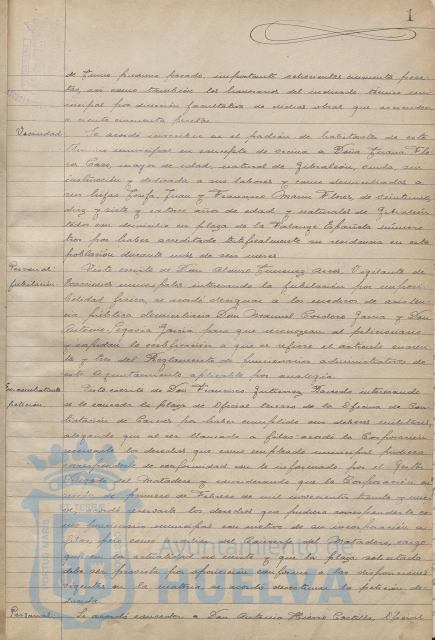 1
de Junio próximo pasado, importante seiscientas cincuenta pese-
tas, así como también los honorarios del indicado técnico mu-
nicipal por dirección facultativa de dichas obras que ascienden
a ciento cincuenta pesetas.
Vecindad. Se acordó inscribir en el padrón de habitantes de este
Término municipal en concepto de vecina a Doña Juana Flo-
res Caro, mayor de edad, natural de Gibraleón, viuda, sin
instrucción y dedicada a sus labores y como domiciliados a
sus hijos Josefa, Juan y Francisco Marín Flores, de veintiuno,
diez y siete y catorce años de edad y naturales de Gibraleón
todos con domicilio en plaza de la Falange Española número
tres por haber acreditado testificalmente su residencia en esta
población durante más de seis meses.
Personal: Visto escrito de Don Alvaro Jimenez Vigilante de
jubilación. municipales interesando la jubilación por imposi-
bilidad física, se acordó designar a los médicos de asisten-
cia pública domiciliaria Don Manuel Cordero Garcia y Don
Antonio Segovia Garcia para que reconozcan al peticionario
y expidan la certificación a que se refiere el artículo cuaren-
ta y tres del Reglamento de funcionarios administrativos de
este Ayuntamiento aplicable por analogía.
Ex-combatiente Visto escrito de Don Francisco Gutierrez interesando
petición. se le conceda la plaza de Oficial tercero de la Oficina de Con-
tratación de Carnes por haber cumplido sus deberes militares,
alegando que al ser llamado a filas acordó la Corporación
reservarle los derechos que como empleado municipal pudiera
corresponderle de conformidad con lo informado por el Gestor
Delegado del Matadero y considerando que la Corporación en
sesión de primero de Febrero de mil novecientos treinta y nue-
ve acordó reservarle los derechos que pudiera corresponderle co-
mo funcionario municipal con motivo de su incorporación a
filas, pero como del Matadero, cargo
que en la actualidad y que la plaza solicitada
debe ser provista por oposición conforme a las disposiciones
vigentes en la materia, se acordó desestimar la petición de-
ducida.
Personal: Se acordó conceder a Don Antonio Castilla, Oficial
PORTUS MARIS ET TERRÆ
Ayuntamiento
HUELVA